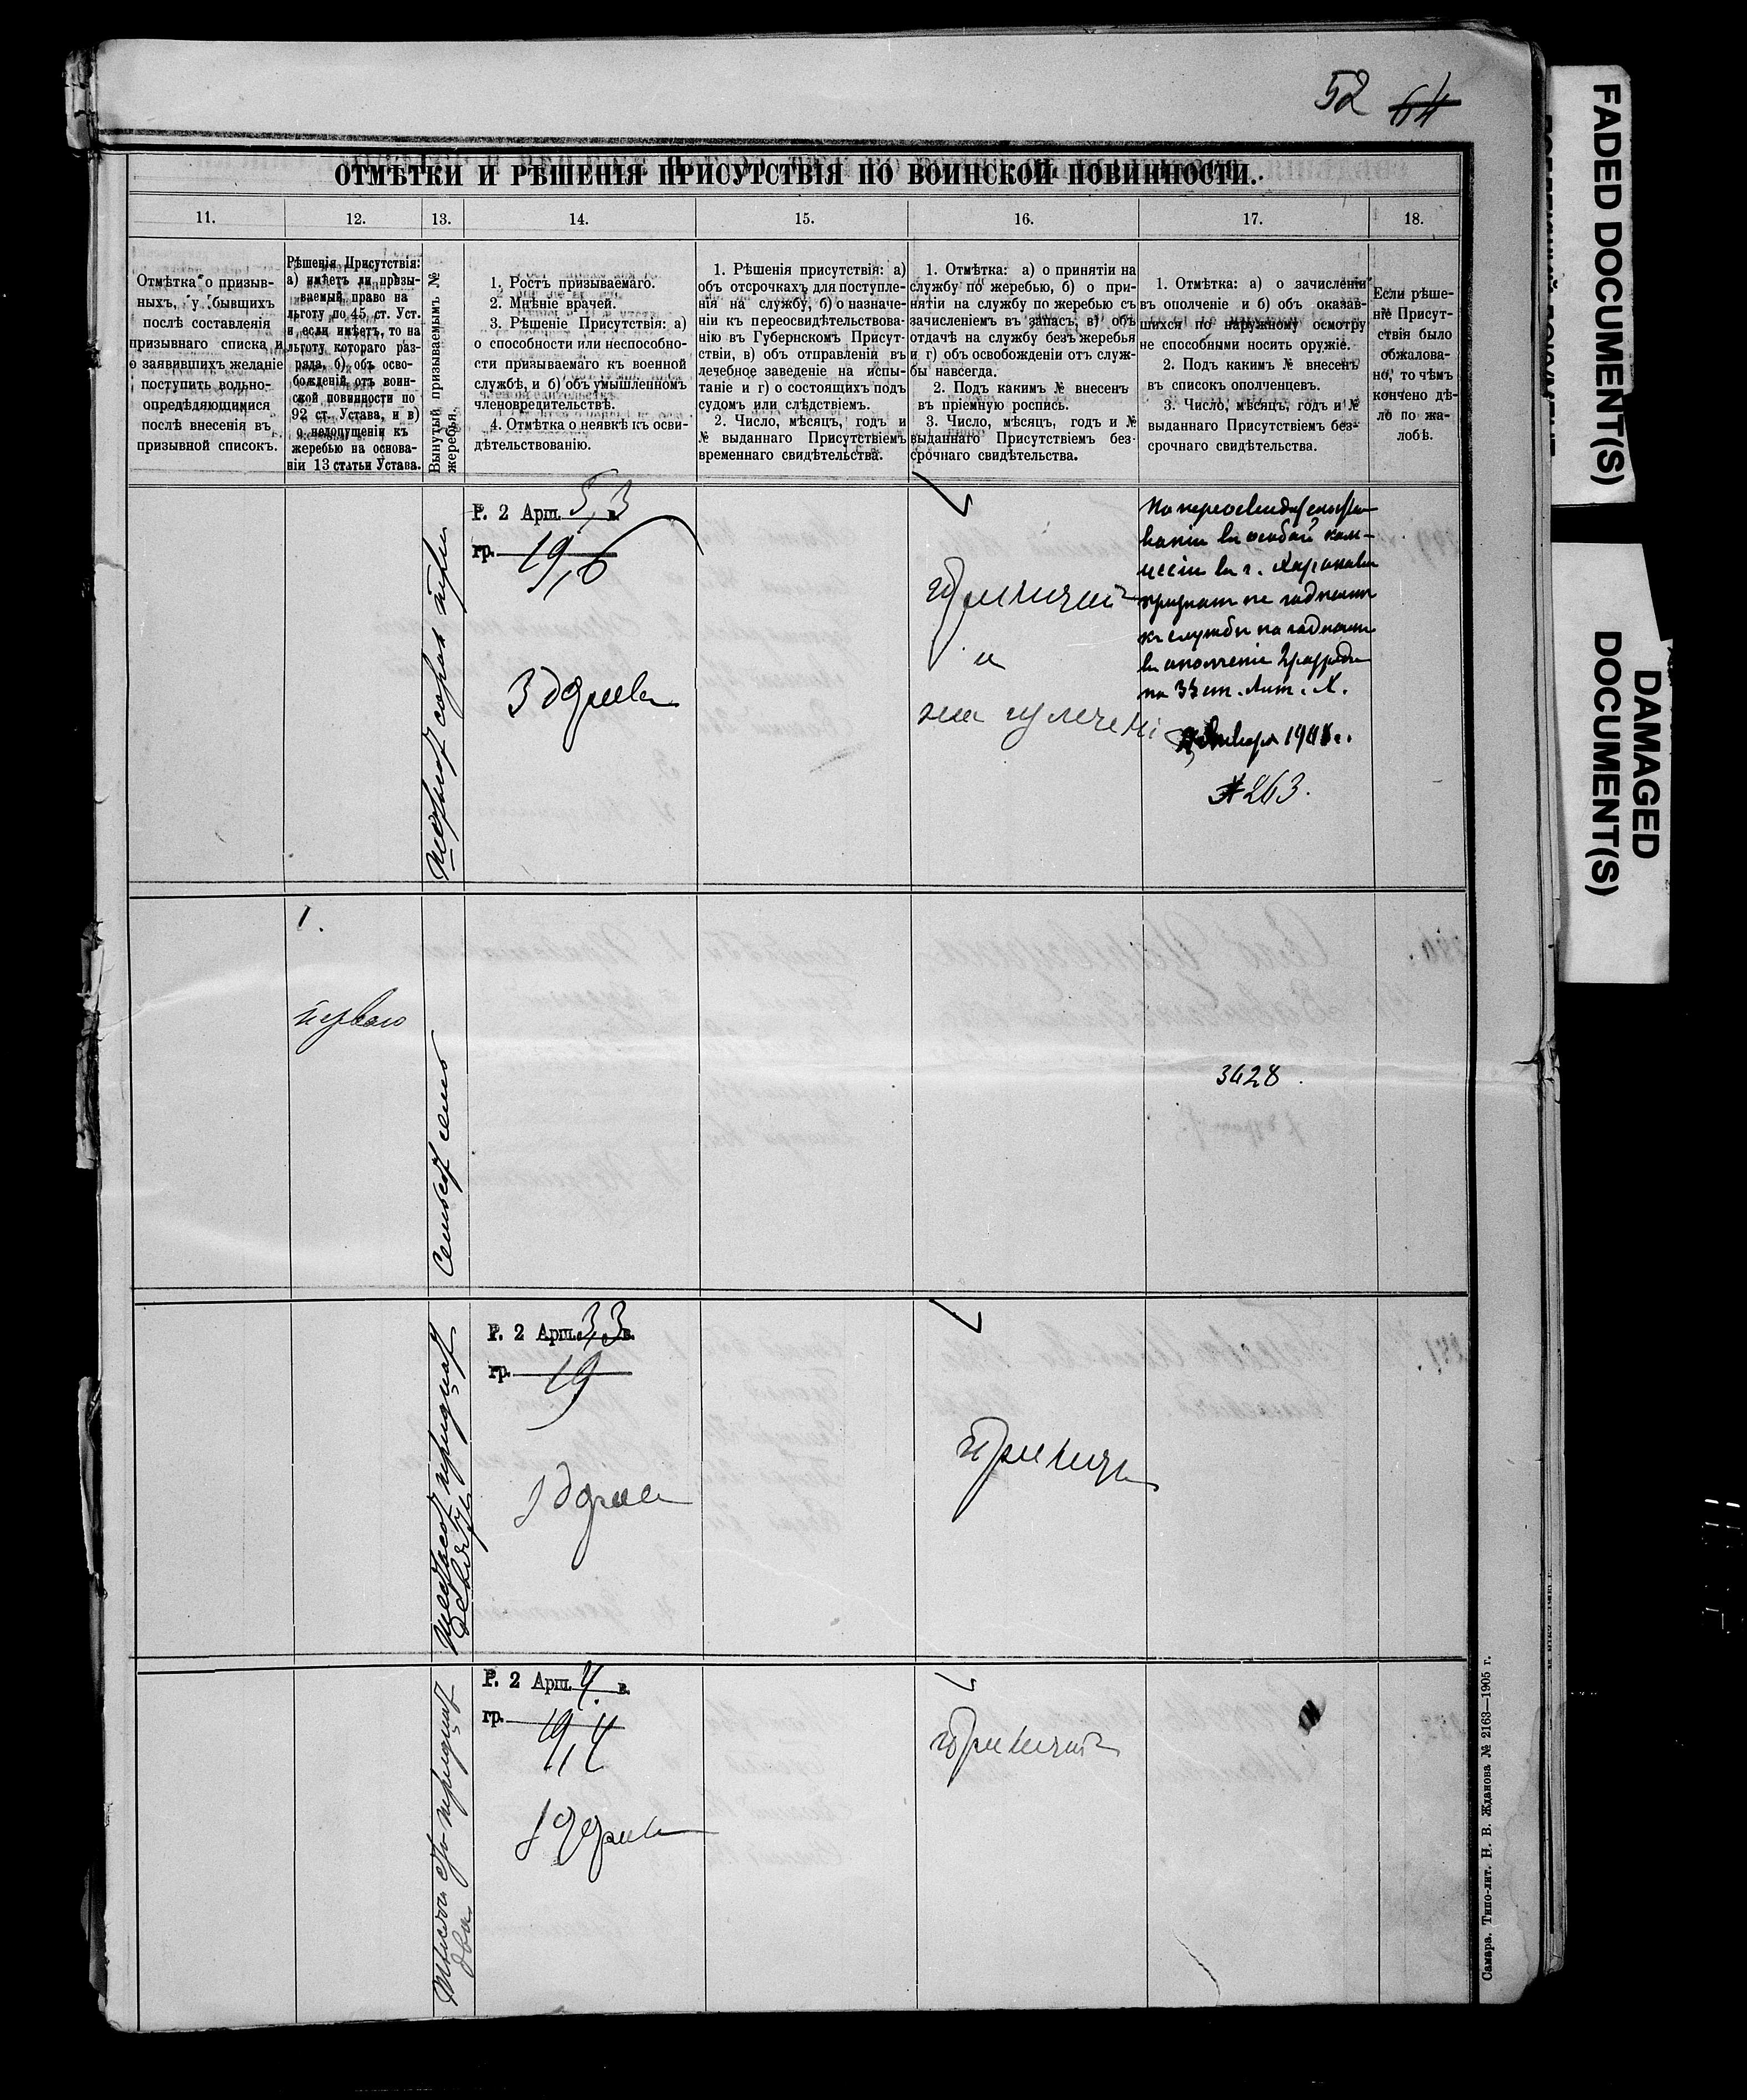 52 64
ОТМѢТКИ И РѢШЕНІЯ ПРИСУТСТВІЯ ПО ВОИНСКОЙ ПОВИННОСТИ.
11.
12.
13.
14.
15.
16.
17.
18.
Отмѣтка о призыв-
ныхъ, у бывшихъ
послѣ составленія
призывнаго списка и
о заявившихъ желаніе
поступить вольно-
опредѣляющимися
послѣ внесенія въ
призывной списокъ.
Рѣшенія Присутствія:
а) имѣетъ ли призы-
ваемый право на
льготу по 45 ст. Уст.
и если имѣетъ, то на
льготу котораго раз-
ряда, б) объ осво-
божденій отъ воин-
ской повинности по
92 ст. Устава, и в)
о недопущеніи къ
жеребью на основа-
ніи 13 статьи Устава.
Вынутый призываемымъ №
жеребья.
1. Ростъ призываемаго.
2. Мнѣніе врачей.
3. Рѣшеніе Присутствія: а)
о способности или неспособно-
сти призываемаго къ военной
службѣ, и б) объ умышленномъ
членовредительствѣ.
4. Отмѣтка о неявкѣ къ осви-
дѣтельствованію.
1. Рѣшенія присутствія: а)
объ отсрочкахъ для поступле-
нія на службу, б) о назначе-
ніи къ переосвидѣтельствова-
нію въ Губернскомъ Присут-
ствіи, в) объ отправленіи въ
лечебное заведеніе на испы-
таніе и г) о состоящихъ подъ
судомъ или слѣдствіемъ.
2. Число, мѣсяцъ, годъ и
№ выданнаго Присутствіемъ
временнаго свидѣтельства.
1. Отмѣтка: а) о принятіи на
службу по жеребью, б) о при-
нятіи на службу по жеребью съ
зачисленіемъ въ запасъ, в) объ
отдачѣ на службу безъ жеребья
и г) объ освобожденіи отъ служ-
бы навсегда.
2. Подъ какимъ № внесенъ
въ пріемную роспись.
3. Число, мѣсяцъ, годъ и №
выданнаго Присутствіемъ без-
срочнаго свидѣтельства.
1. Отмѣтка: а) о зачисленіи
въ ополченіе и б) объ оказав-
шихся по наружному осмотру
не способными носить оружіе.
2. Подъ какимъ № внесенъ
въ списокъ ополченцевъ.
3. Число, мѣсяцъ, годъ и №
выданнаго Присутствіемъ без-
срочнаго свидѣтельства.
Если рѣше-
ніе Присут-
ствія было
обжалова-
но, то чѣмъ
кончено дѣ-
ло по жа-
лобѣ.
Р. 2 Арш. 5,3 в.
гр. 19,6
По переосвидѣтельство-
ваніи въ особой ком-
мссіи въ г.
признанъ не годнымъ
къ службѣ но годнымъ
въ ополченіе
по 33 ст. лит.
Января
№ 263.
1.
перваго
Семьсот семь
3428
Р. 2 Арш. 3,3 в.
гр. 19
Шестьсот тридцат
девять
Принят
Р. 2 Арш. 4 в.
гр. 19,4
Тысяча сто тридцат
два
Принят
Самара. Типо-лит. Н. В. Жданова № 2163—1905 г.
FADED DOCUMENT(S)
DAMAGED
DOCUMENT(S)